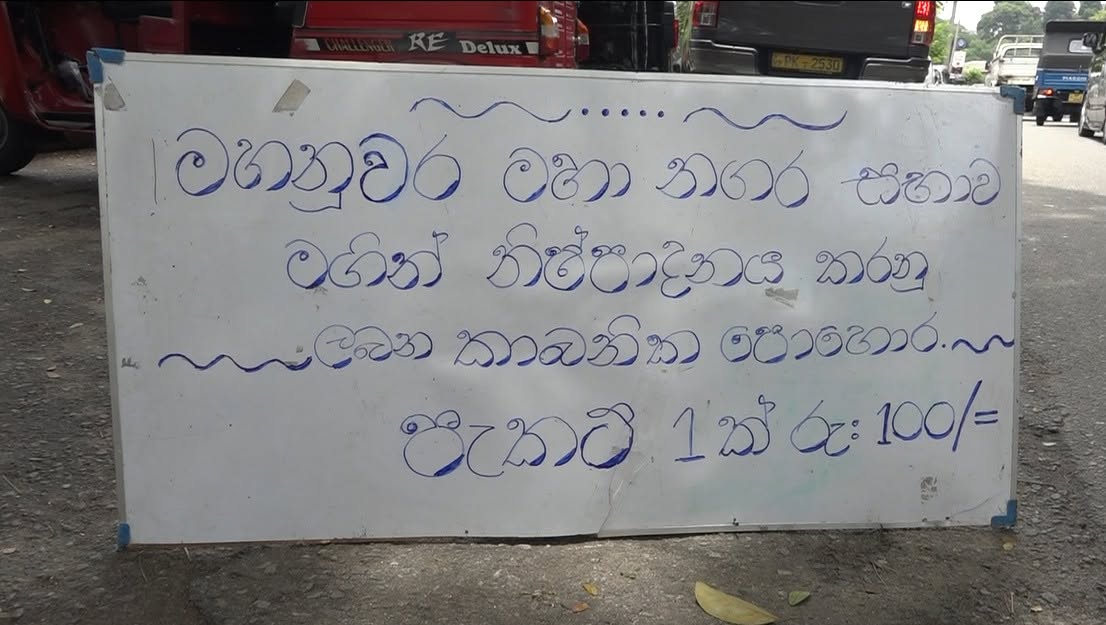 CHALLENGER RE Delux
PK - 2530
මහනුවර මහා නගර සභාව
මගින් නිෂ්පාදනය කරනු
ලබන කාබනික පොහොර.
පැකට් 1 ක් රු: 100/=